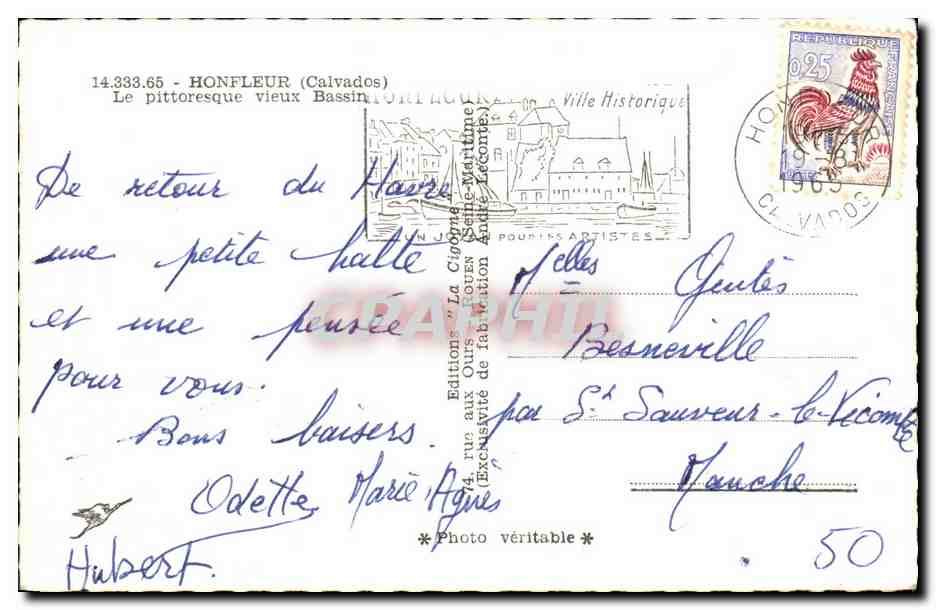 14.333.65 - HONFLEUR (Calvados)
Le pittoresque vieux Bassin
HONFLEUR
Ville Historique
POUR LES ARTISTES
REPUBLIQUE FRANÇAISE
0,25
HONFLEUR
19 -8
1965
CALVADOS
De retour du Havre
une petite halte
et une pensée
pour vous.
Bons baisers.
Odette Marie Agnès
Hubert.
Editions "La Cigogne"
74, rue aux Ours - ROUEN (Seine-Maritime)
(Exclusivité de fabrication André Leconte.)
Melles Gentès
Besneville
par St Sauveur-le-Vicomte
Manche
* Photo véritable *
50
CPAPHIL